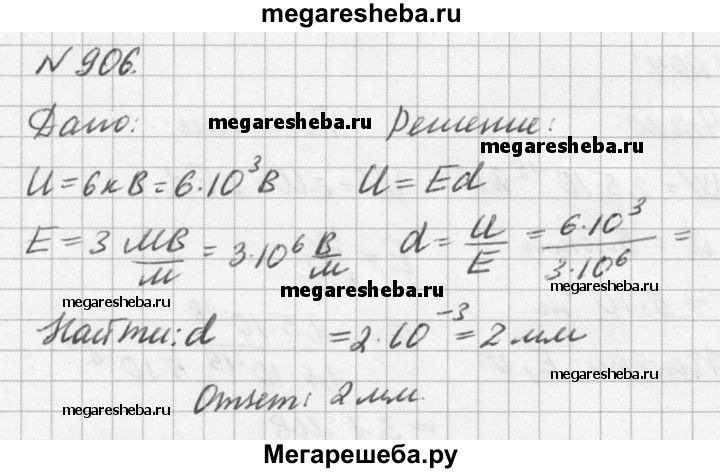 megaresheba.ru
N 906.
Дано: megaresheba.ru Решение:
U = 6кВ = 6·10³В U = Ed
E = 3 МВ/м = 3·10⁶ В/м d = U/E = 6·10³/3·10⁶ =
megaresheba.ru megaresheba.ru megaresheba.ru
Найти: d = 2·10⁻³ = 2 мм
megaresheba.ru Ответ: 2 мм. megaresheba.ru
Мегарешеба.ру